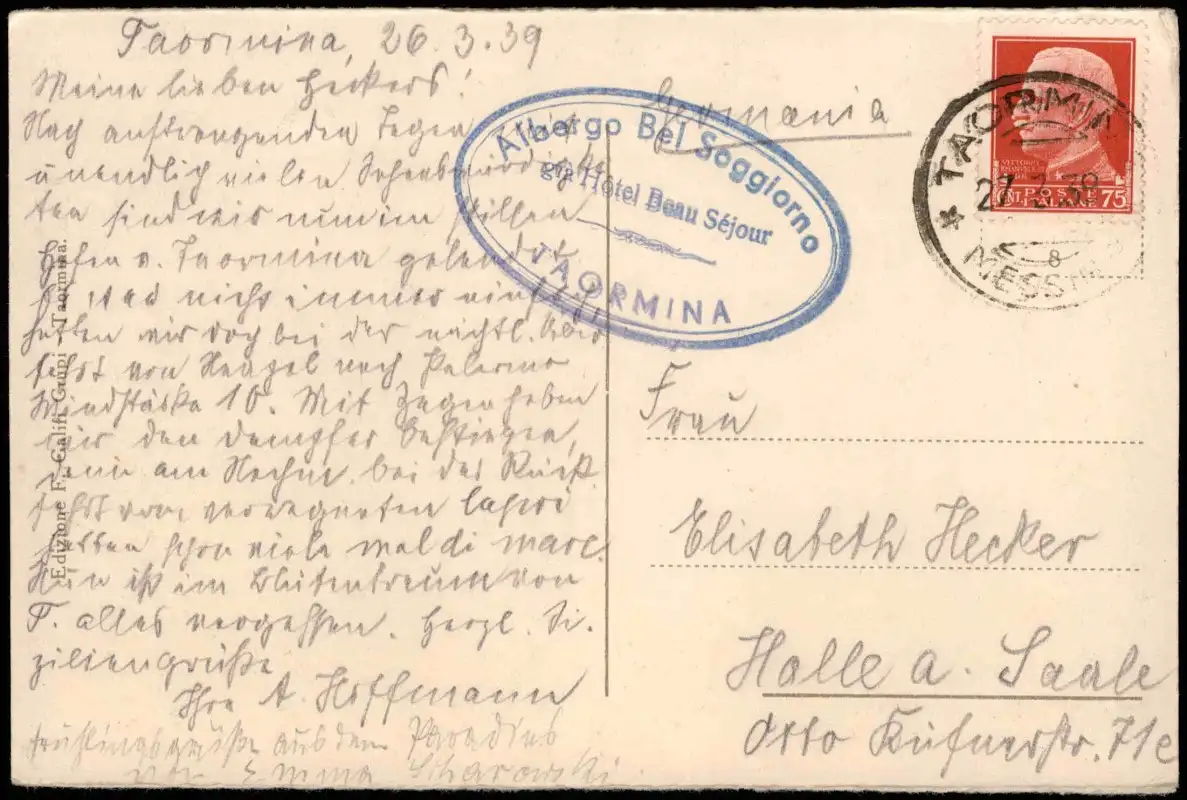 Taormina, 26.3.39
Meine lieben Heckers!
Nach anstrengenden Tagen
u. unendlich vielen Sehenswürdigkei-
ten sind wir nun im stillen
Hafen v. Taormina gelandet.
nicht immer
hatten wir doch bei der nächtl. Über
fahrt von Neapel nach Palermo
Windstärke 10. Mit Zagen haben
wir den Dampfer bestiegen,
denn am Nachm. bei der Rück
fahrt vom verregneten Capri
hatten schon viele mal di mare.
Nun ist im Blütentraum von
T. alles vergessen. Herzl. Si-
ziliengrüße
Ihre A. Hoffmann
Frühlingsgrüße aus dem Paradies
von Emma
Edizione F. Galifi Crupi - Taormina.
Albergo Bel Soggiorno
già Hôtel Beau Séjour
TAORMINA
Germania
TAORMINA
27.3.39
8
MESSINA
VITTORIO
CENT. POSTE ITALIANE 75
Frau
Elisabeth Hecker
Halle a. Saale
Otto Küfnerstr. 71c